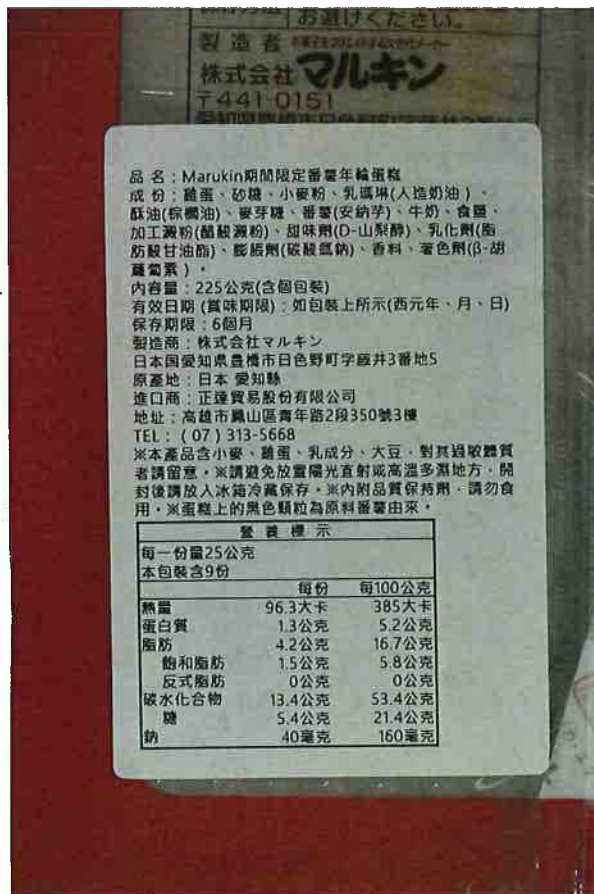 お避けください。
製造者 お菓子をクリエイトする次世代メーカー
株式会社マルキン
〒441-0151
品 名：Marukin期間限定番薯年輪蛋糕
成 份：雞蛋、砂糖、小麥粉、乳瑪琳(人造奶油)、
酥油(棕櫚油)、麥芽糖、番薯(安納芋)、牛奶、食鹽、
加工澱粉(醋酸澱粉)、甜味劑(D-山梨醇)、乳化劑(脂
肪酸甘油酯)、膨脹劑(碳酸氫鈉)、香料、著色劑(β-胡
蘿蔔素)。
內容量：225公克(含個包裝)
有效日期 (賞味期限)：如包裝上所示(西元年、月、日)
保存期限：6個月
製造商：株式会社マルキン
日本国愛知県豊橋市日色野町字藤井3番地5
原產地：日本 愛知縣
進口商：正達貿易股份有限公司
地址：高雄市鳳山區青年路2段350號3樓
TEL：(07) 313-5668
※本產品含小麥、雞蛋、乳成分、大豆，對其過敏體質
者請留意。※請避免放置陽光直射或高溫多濕地方，開
封後請放入冰箱冷藏保存。※內附品質保持劑，請勿食
用。※蛋糕上的黑色顆粒為原料番薯由來。
營 養 標 示
每一份量25公克
本包裝含9份
每份 每100公克
熱量 96.3大卡 385大卡
蛋白質 1.3公克 5.2公克
脂肪 4.2公克 16.7公克
飽和脂肪 1.5公克 5.8公克
反式脂肪 0公克 0公克
碳水化合物 13.4公克 53.4公克
糖 5.4公克 21.4公克
鈉 40毫克 160毫克